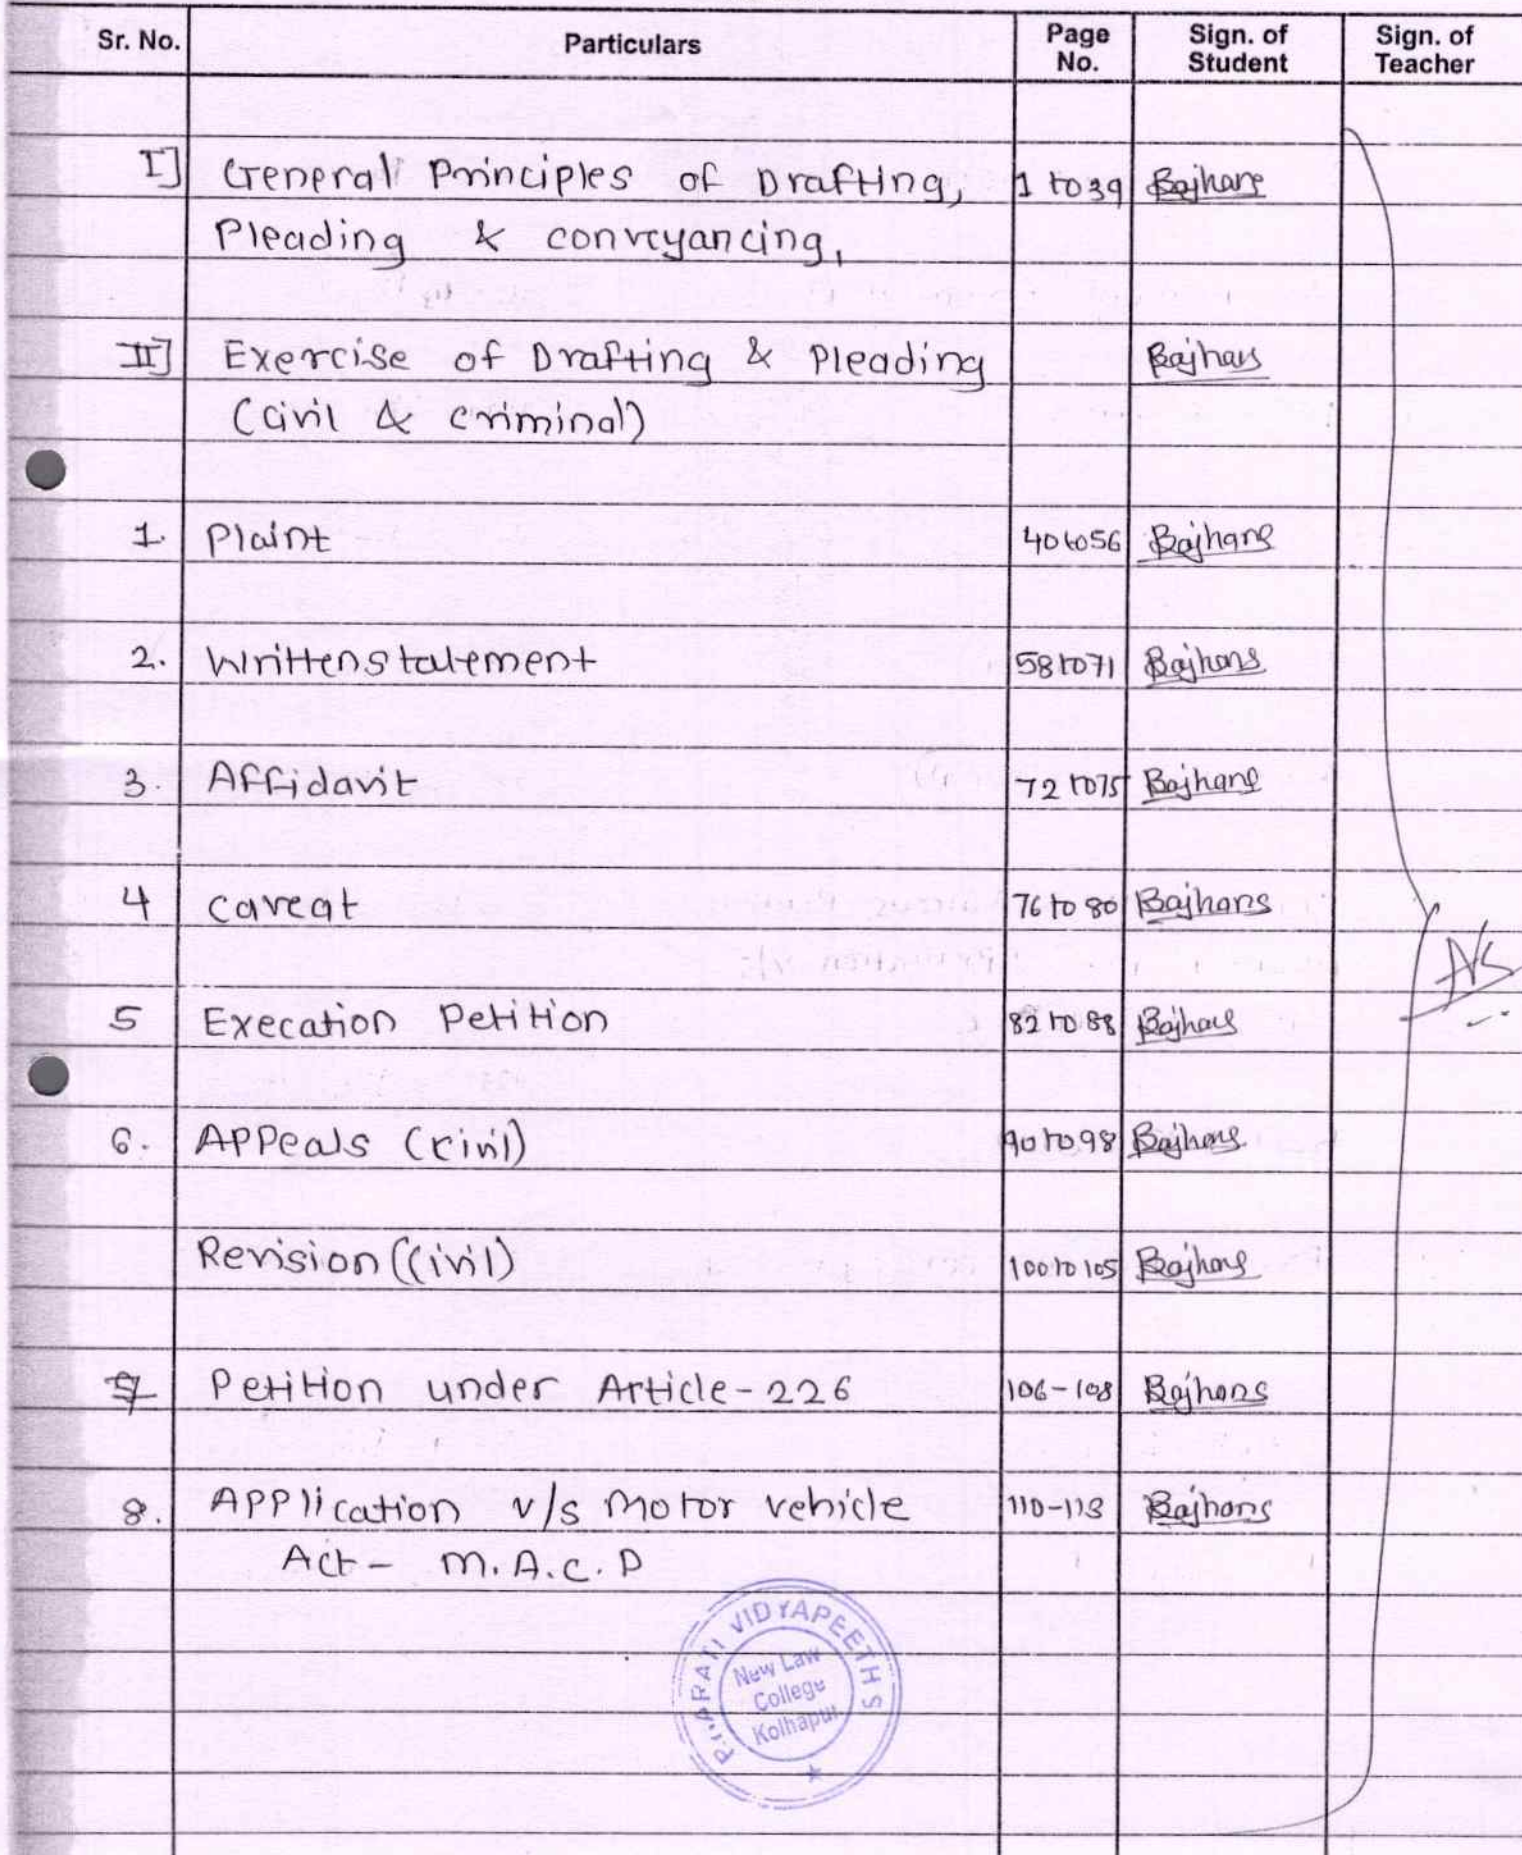 Sr. No. Particulars Page No. Sign. of Student Sign. of Teacher
I] General Principles of Drafting, 1 to 39 Bajhans
Pleading & conveyancing,
II] Exercise of Drafting & Pleading Bajhans
(Civil & Criminal)
1. Plaint 40 to 56 Bajhans
2. Written statement 58 to 71 Bajhans
3. Affidavit 72 to 75 Bajhans
4 Caveat 76 to 80 Bajhans
5 Execation Petition 82 to 88 Bajhans
NS
6. Appeals (Civil) 90 to 98 Bajhans
Revision (Civil) 100 to 105 Bajhans
7 Petition under Article-226 106-108 Bajhans
8. Application v/s Motor vehicle 110-113 Bajhans
Act - M.A.C.P
BHARATI VIDYAPEETH'S
New Law
College
Kolhapur